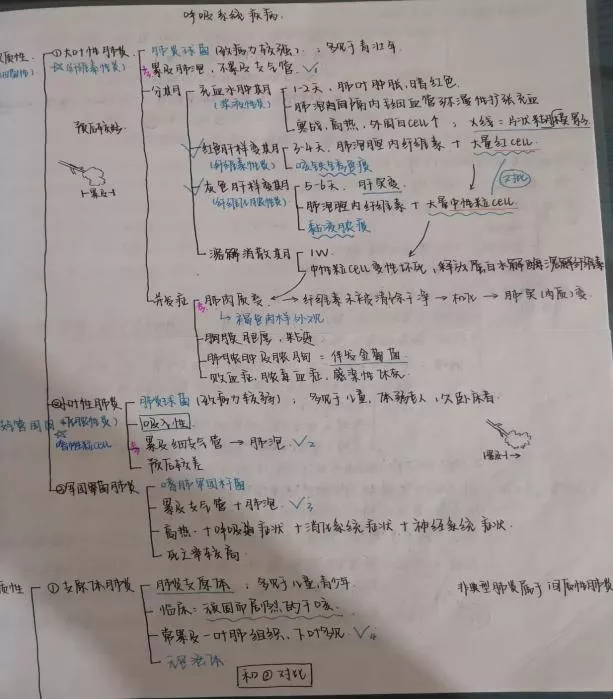 呼吸系统疾病.
①大叶性肺炎
肺炎球菌(致病力较强); 多见于青壮年.
(纤维素性炎)
累及肺泡, 不累及支气管. √1
分期
充血水肿期
(浆液性炎)
1-2天, 肺叶肿胀, 暗红色.
肺泡间隔内毛细血管弥漫性扩张充血
寒战, 高热, 外周白cell↑; X线=片状
预后较好
红色肝样变期
(纤维素性炎)
3-4天, 肺泡腔内纤维素 + 大量红cell.
咳铁锈色痰
灰色肝样变期
(纤维素性炎)
5-6天, 肝实变.
对比
肺泡腔内纤维素 + 大量中性粒cell.
黏液脓痰
溶解消散期
1W
中性粒cell变性坏死, 释放蛋白水解酶溶解纤维素
并发症
肺肉质变. ← 纤维素不被清除干净 → 机化 → 肺实(肉质)变.
↳ 褐色肉样外观
胸膜肥厚, 粘连
肺脓肿及脓胸 = 伴发金葡菌
败血症, 脓毒血症, 感染性休克
②小叶性肺炎
肺炎球菌(致病力较弱); 多见于儿童, 体弱老人, 久卧床者.
(化脓性炎)
吸入性
中性粒cell
累及细支气管 → 肺泡. √2
预后较差
③军团菌肺炎
嗜肺军团杆菌
累及支气管 + 肺泡. √3
高热 + 呼吸道症状 + 消化系统症状 + 神经系统症状.
死亡率较高.
①支原体肺炎
肺炎支原体; 多见于儿童, 青少年.
非典型肺炎属于间质性肺炎
临床= 顽固而剧烈的干咳.
常累及一叶肺组织, 下叶多见. √4
和②对比